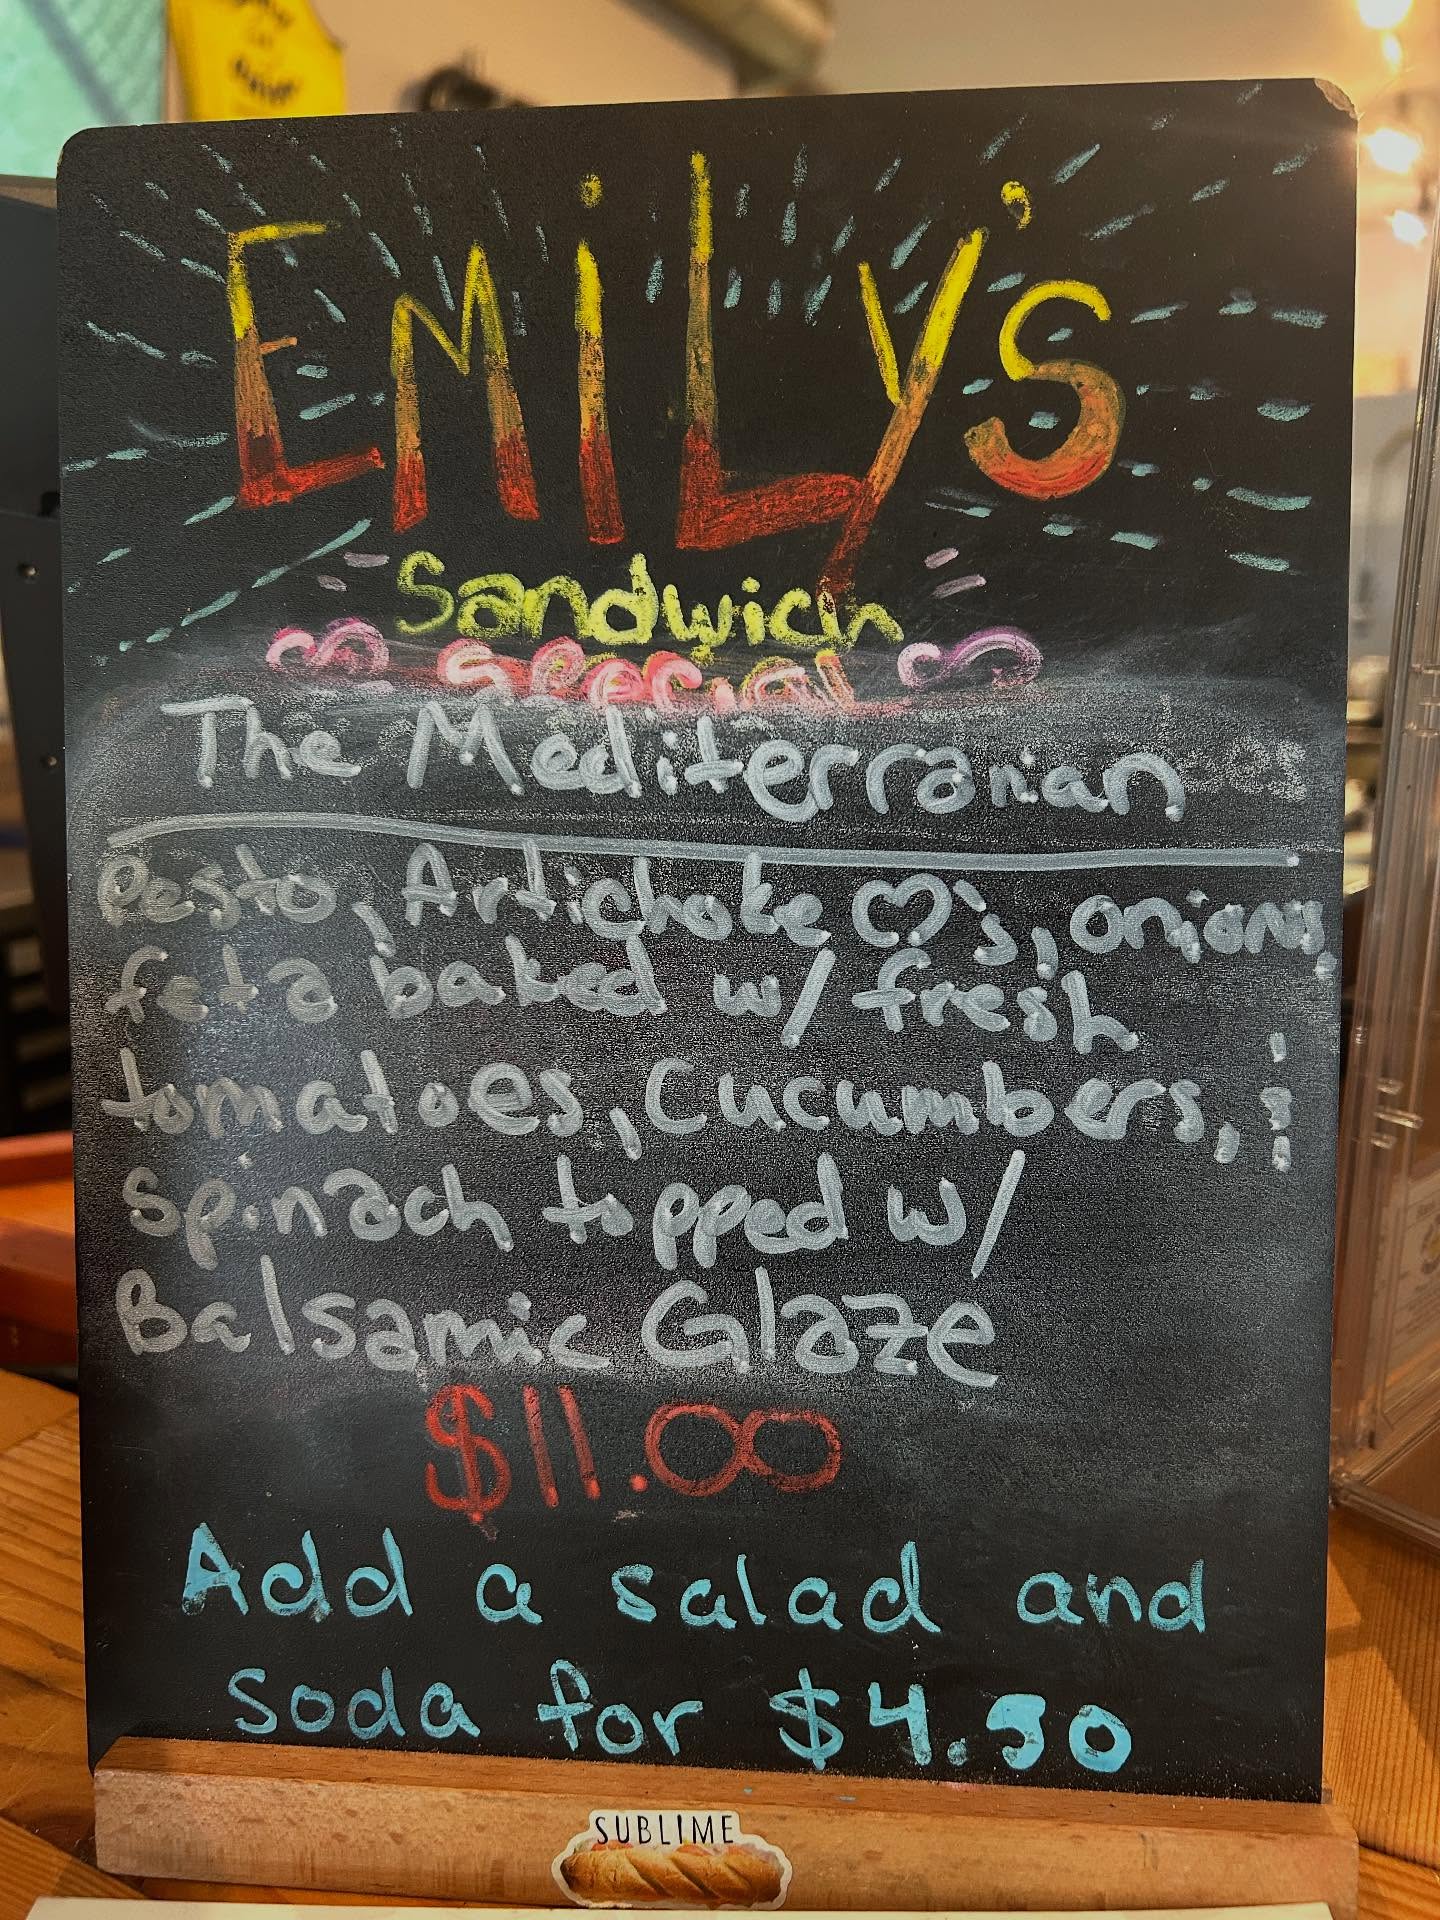 EMiLy's
Sandwich
Special
The Mediterranian
Pesto, Artichoke ♡'s, onions,
feta baked w/ fresh
tomatoes, Cucumbers, &
spinach topped w/
Balsamic Glaze
$11.00
Add a salad and
soda for $4.50
SUBLIME